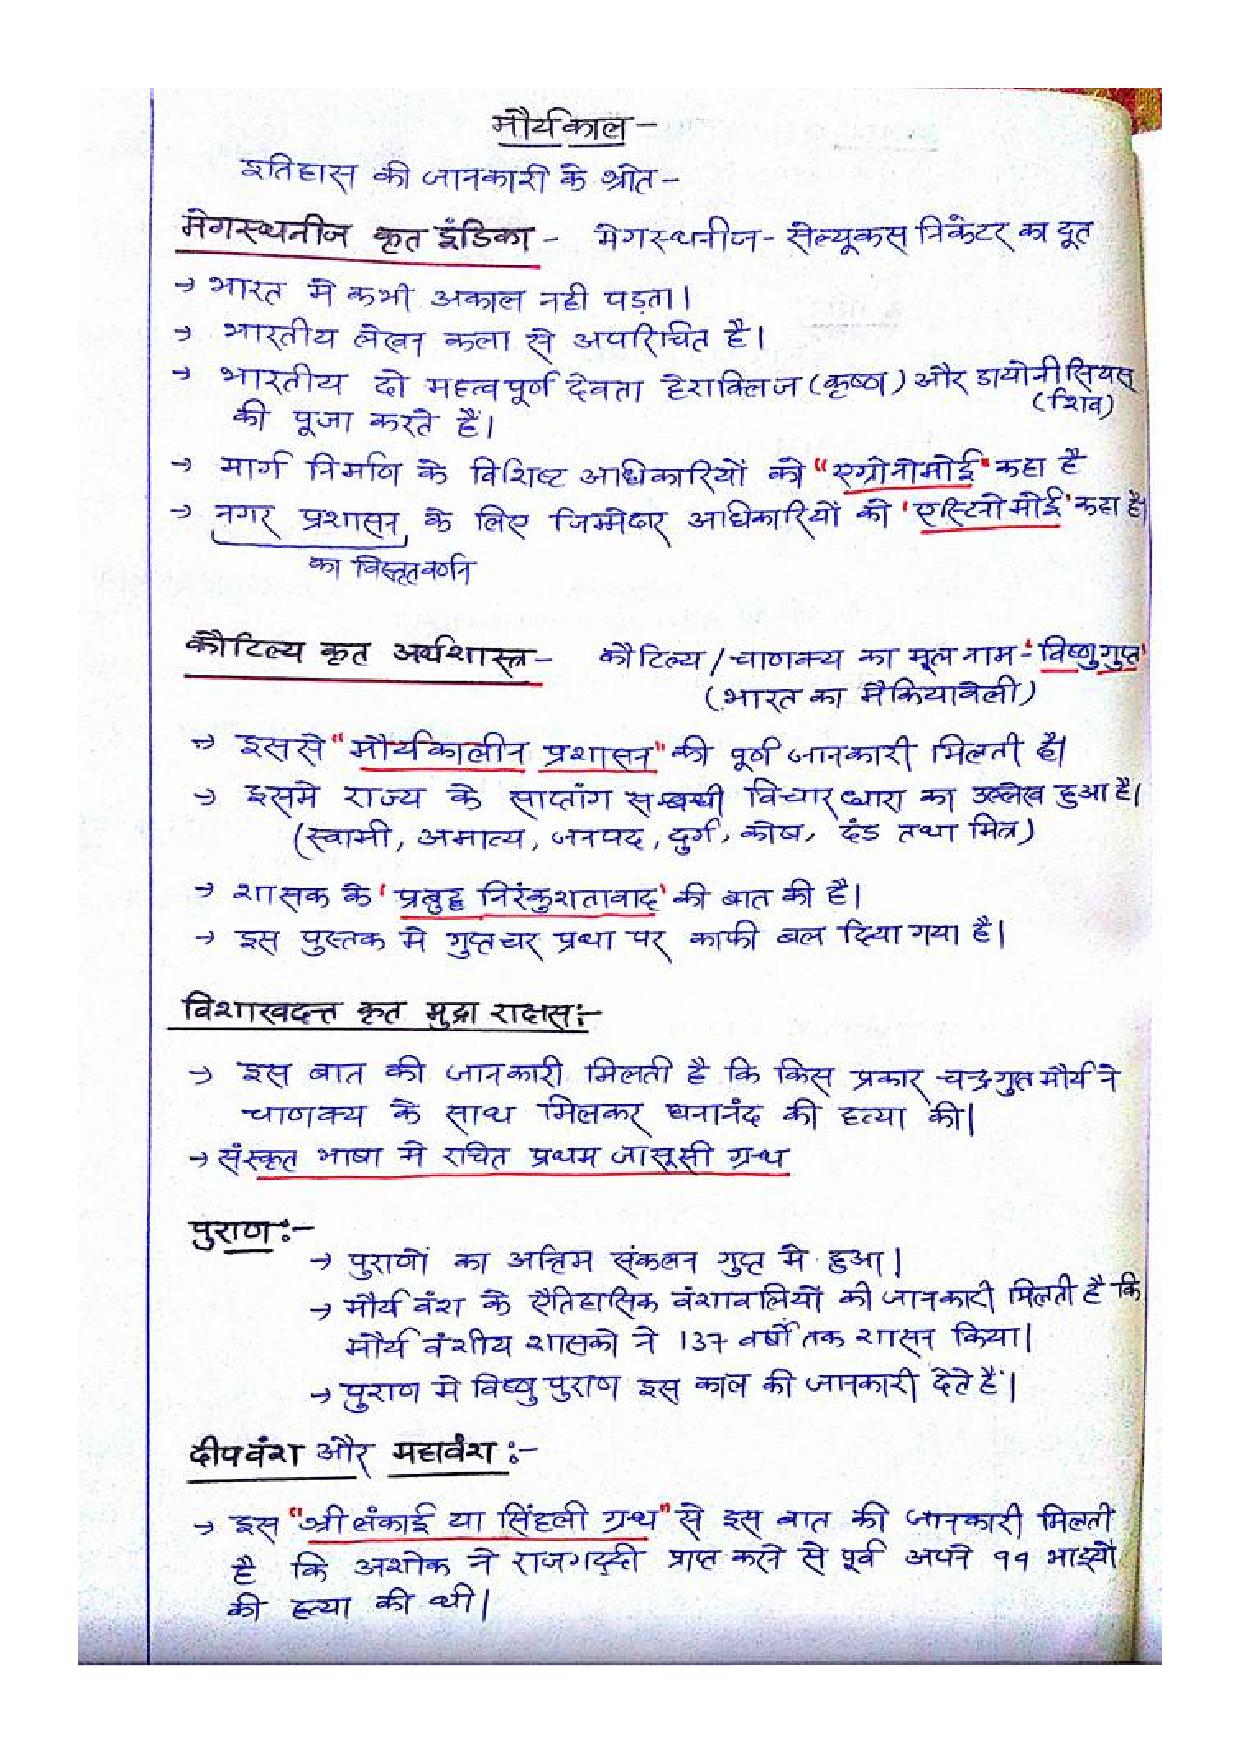 मौर्यकाल -
इतिहास की जानकारी के श्रोत -
मेगस्थनीज कृत इंडिका - मेगस्थनीज - सेल्यूकस निकेटर का दूत
→ भारत मे कभी अकाल नही पड़ता।
→ भारतीय लेखन कला से अपरिचित है।
→ भारतीय दो महत्वपूर्ण देवता हेराक्लिज (कृष्ण) और डायोनीसियस
(शिव)
की पूजा करते हैं।
→ मार्ग निर्माण के विशिष्ट अधिकारियों को "एग्रोनोमोई" कहा है
→ नगर प्रशासन के लिए जिम्मेदार अधिकारियों को 'एस्टिनोमोई' कहा है।
का विस्तृत वर्णन
कौटिल्य कृत अर्थशास्त्र - कौटिल्य / चाणक्य का मूल नाम - 'विष्णुगुप्त'
(भारत का मैकियावेली)
→ इससे "मौर्यकालीन प्रशासन" की पूर्ण जानकारी मिलती है।
→ इसमे राज्य के साप्तांग सम्बन्धी विचारधारा का उल्लेख हुआ है।
(स्वामी, अमात्य, जनपद, दुर्ग, कोष, दंड तथा मित्र)
→ शासक के 'प्रबुद्ध निरंकुशतावाद' की बात की है।
→ इस पुस्तक मे गुप्तचर प्रथा पर काफी बल दिया गया है।
विशाखदत्त कृत मुद्रा राक्षस :-
→ इस बात की जानकारी मिलती है कि किस प्रकार चन्द्रगुप्त मौर्य ने
चाणक्य के साथ मिलकर घनानंद की हत्या की।
→ संस्कृत भाषा मे रचित प्रथम जासूसी ग्रन्थ
पुराण :-
→ पुराणों का अन्तिम संकलन गुप्त मे हुआ।
→ मौर्य वंश के ऐतिहासिक वंशावलियों की जानकारी मिलती है कि
मौर्य वंशीय शासको ने 137 वर्षों तक शासन किया।
→ पुराण मे विष्णु पुराण इस काल की जानकारी देते हैं।
दीपवंश और महावंश :-
→ इस "श्रीलंकाई या सिंहली ग्रन्थ" से इस बात की जानकारी मिलती
है कि अशोक ने राजगद्दी प्राप्त करने से पूर्व अपने ९९ भाइयों
की हत्या की थी।